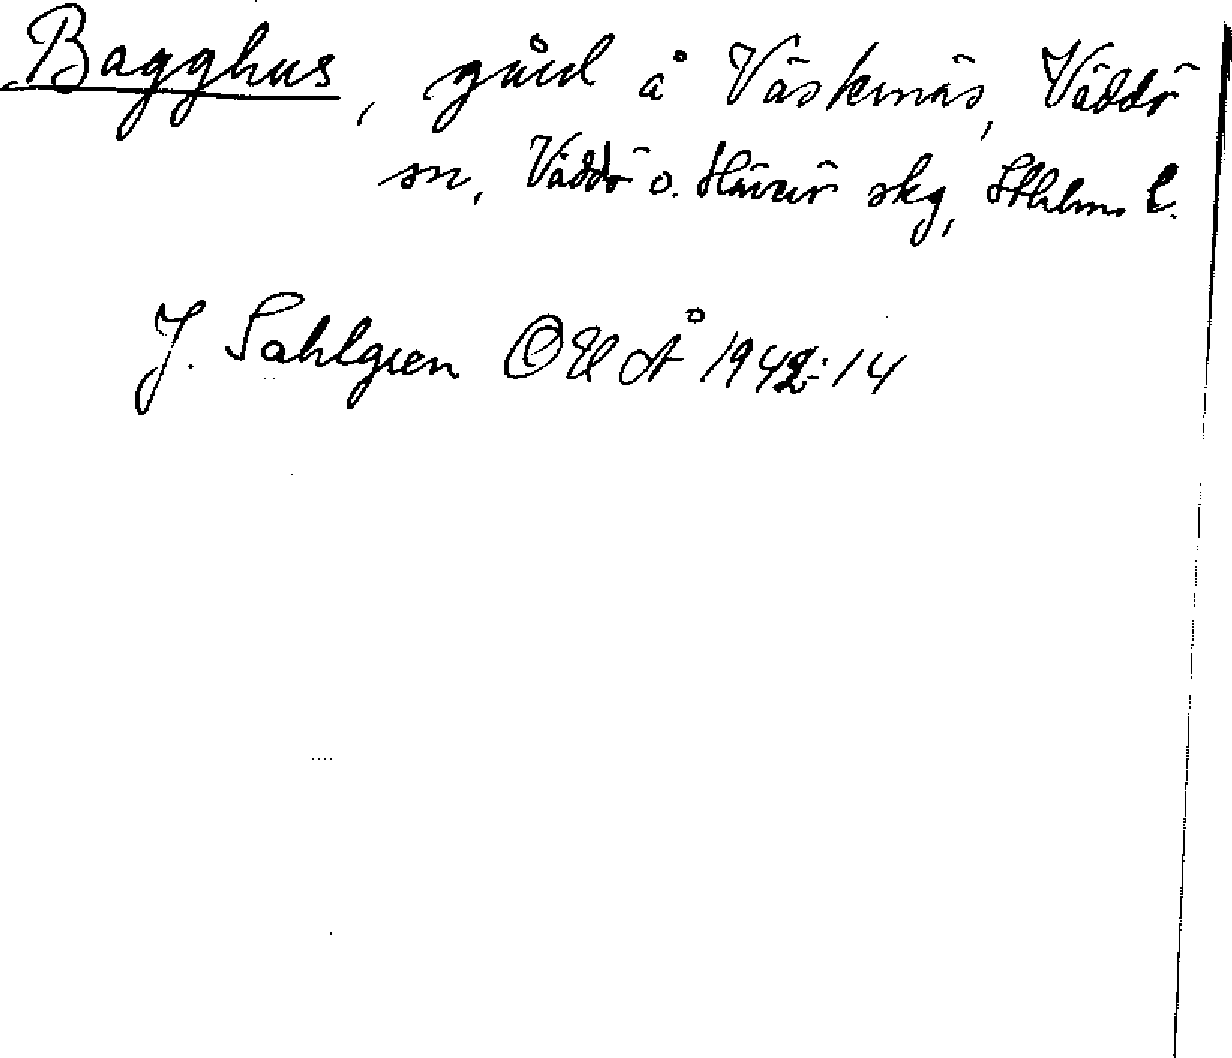 Bagghus, gård å Väskinäs, Väddö
sn, Väddö o. Häverö skg, Sthlms l.
J. Sahlgren 1942:14